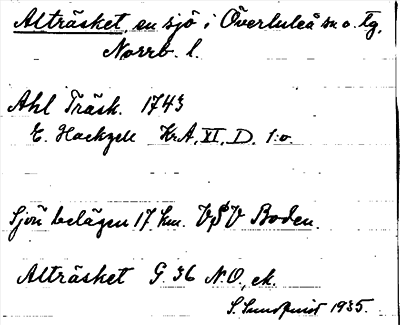 Alträsket, en sjö i Överluleå sn o. tg,
Norrb. l.
Ahl Träsk. 1743
E. Hackzell KrA, XI, D. 1:o.
Sjön belägen 17 km. VSV Boden.
Alträsket G. 36 N.O, ek.
S. Sundqvist 1935.